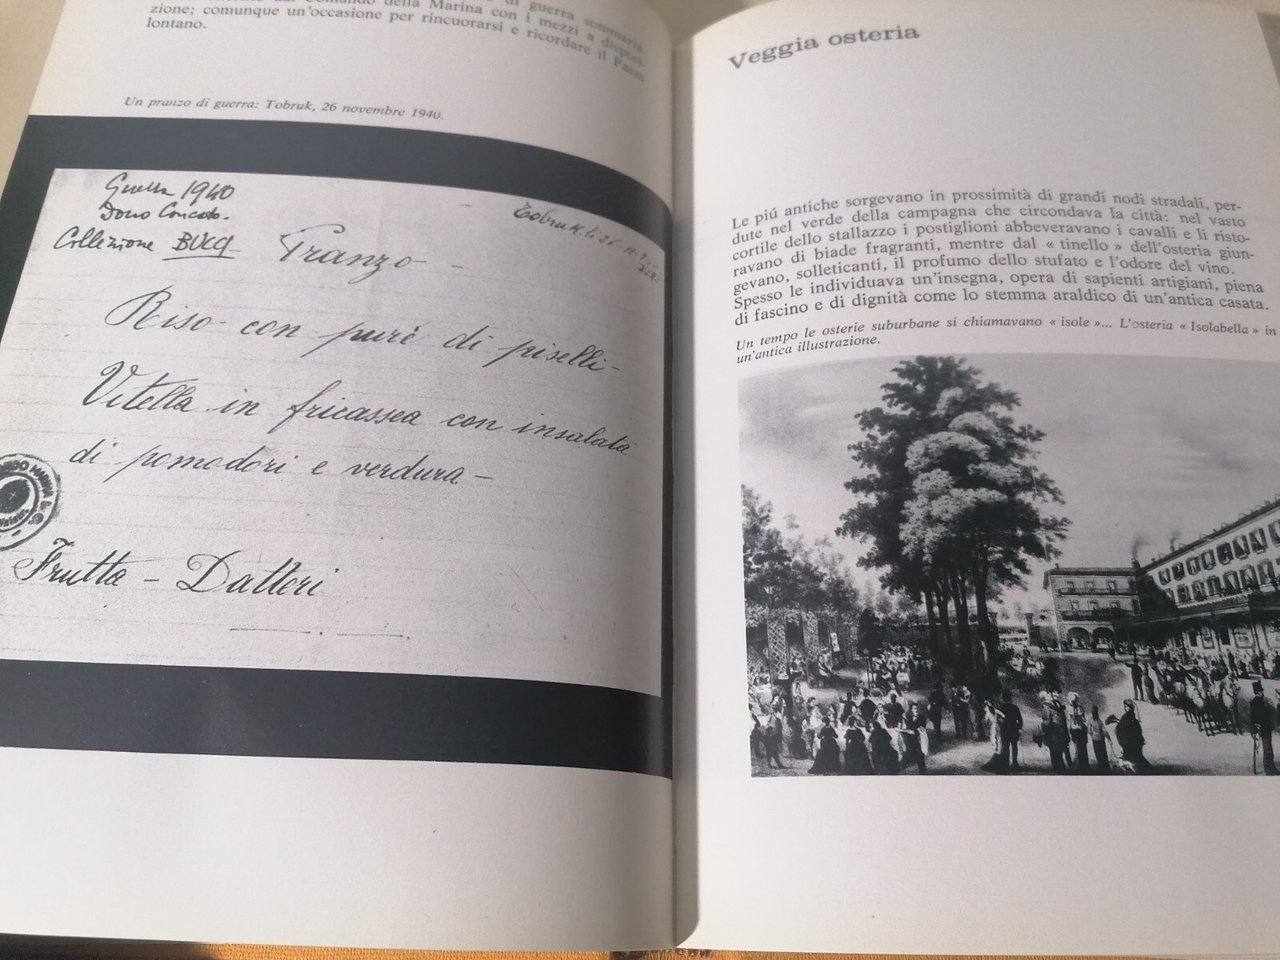 di guerra sommaria-
Comando della Marina con i mezzi a disposi-
zione; comunque un'occasione per rincuorarsi e ricordare il Paese
lontano.
Un pranzo di guerra: Tobruk, 26 novembre 1940.
Guerra 1940
Dono
Collezione BUCCI
Tobruk. li 26-11-
Pranzo -
Riso con purè di piselli-
Vitella in fricassea con insalata
di pomodori e verdura -
Frutta - Datteri
Veggia osteria
Le piú antiche sorgevano in prossimità di grandi nodi stradali, per-
dute nel verde della campagna che circondava la città: nel vasto
cortile dello stallazzo i postiglioni abbeveravano i cavalli e li risto-
ravano di biade fragranti, mentre dal « tinello » dell'osteria giun-
gevano, solleticanti, il profumo dello stufato e l'odore del vino.
Spesso le individuava un'insegna, opera di sapienti artigiani, piena
di fascino e di dignità come lo stemma araldico di un'antica casata.
Un tempo le osterie suburbane si chiamavano « isole »... L'osteria « Isolabella » in
un'antica illustrazione.